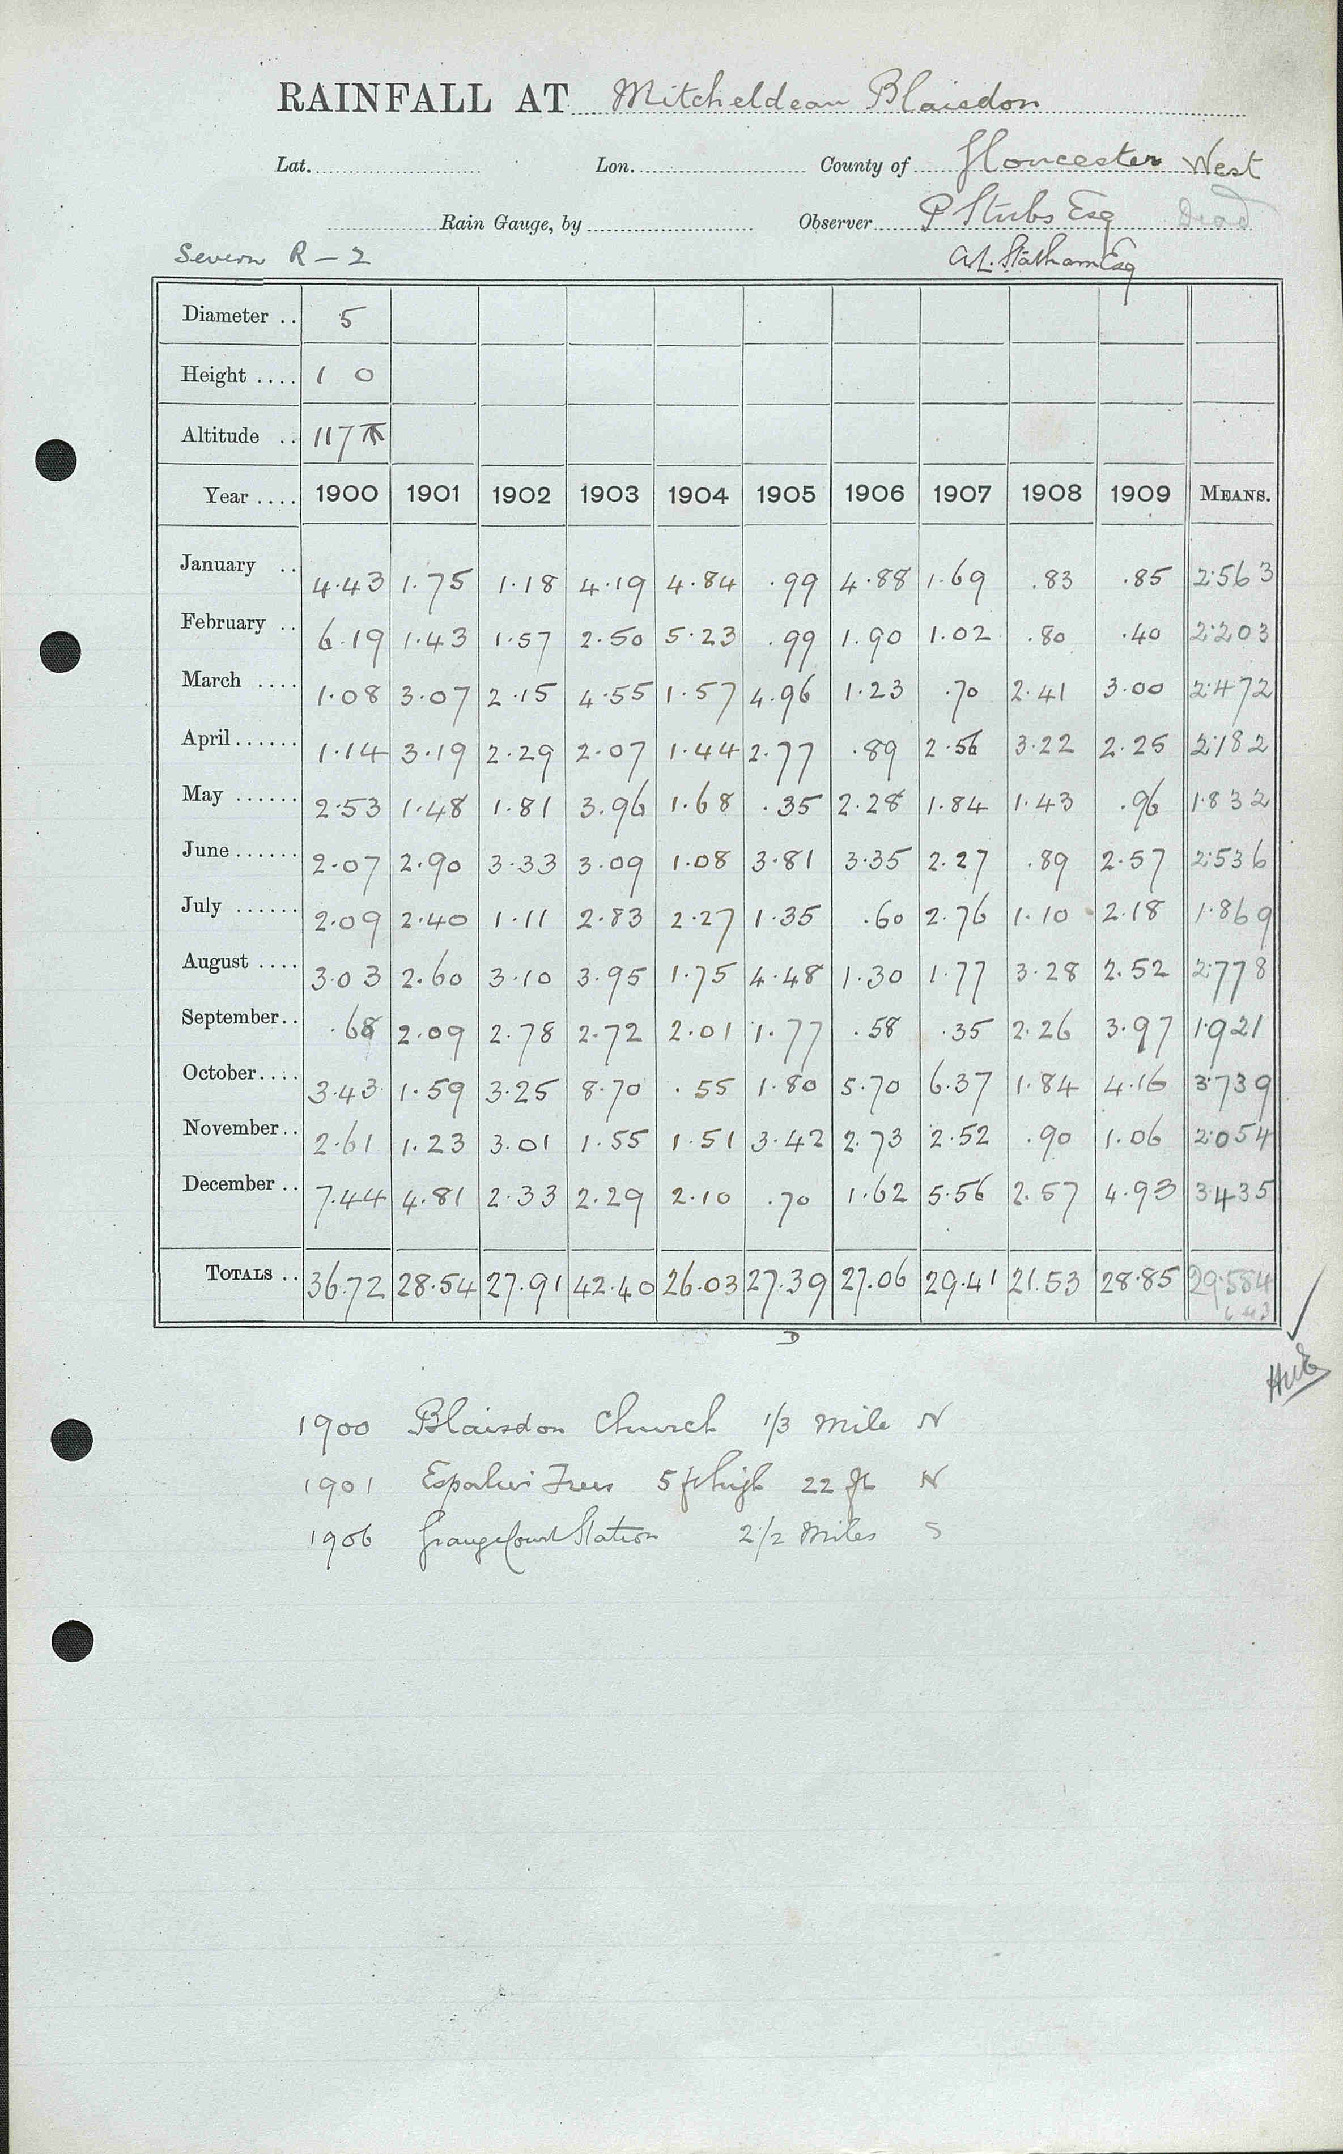 RAINFALL AT Mitcheldean Blaisdon
Lat. Lon. County of Gloucester West
Rain Gauge, by Observer P Stubs Esq Dead
Severn R - 2 A.L. Statham Esq
Diameter .. 5
Height .... 1 0
Altitude .. 117
Year .... 1900 1901 1902 1903 1904 1905 1906 1907 1908 1909 MEANS.
January .. 4.43 1.75 1.18 4.19 4.84 .99 4.88 1.69 .83 .85 2.563
February .. 6.19 1.43 1.57 2.50 5.23 .99 1.90 1.02 .80 .40 2.203
March .... 1.08 3.07 2.15 4.55 1.57 4.96 1.23 .70 2.41 3.00 2.472
April ...... 1.14 3.19 2.29 2.07 1.44 2.77 .89 2.56 3.22 2.25 2.182
May ...... 2.53 1.48 1.81 3.96 1.68 .35 2.28 1.84 1.43 .96 1.832
June ...... 2.07 2.90 3.33 3.09 1.08 3.81 3.35 2.27 .89 2.57 2.536
July ...... 2.09 2.40 1.11 2.83 2.27 1.35 .60 2.76 1.10 2.18 1.869
August .... 3.03 2.60 3.10 3.95 1.75 4.48 1.30 1.77 3.28 2.52 2.778
September .. .68 2.09 2.78 2.72 2.01 1.77 .58 .35 2.26 3.97 1.921
October .... 3.43 1.59 3.25 8.70 .55 1.80 5.70 6.37 1.84 4.16 3.739
November .. 2.61 1.23 3.01 1.55 1.51 3.42 2.73 2.52 .90 1.06 2.054
December .. 7.44 4.81 2.33 2.29 2.10 .70 1.62 5.56 2.57 4.93 3.435
TOTALS .. 36.72 28.54 27.91 42.40 26.03 27.39 27.06 29.41 21.53 28.85 29.584
D
1900 Blaisdon Church 1/3 mile N
1901 Espalier Trees 5 ft high 22 ft N
1906 Grange Court Station 2 1/2 Miles S